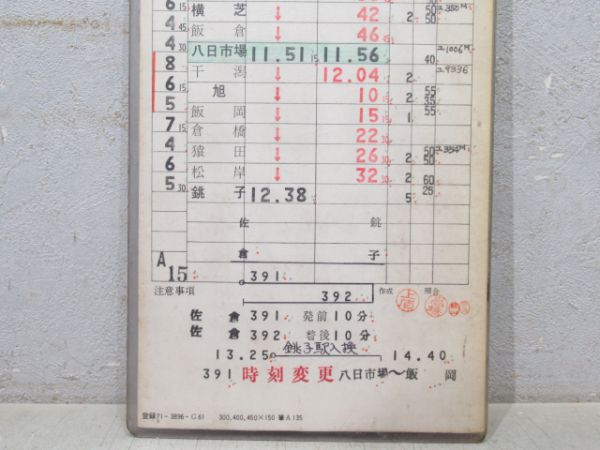 6 15 横芝 ↓ 42 2 50 50
4 飯倉 ↓ 46 45
4 30 八日市場 11.51 15 11.56 40 ユ1006M
8 干潟 ↓ 12.04 2 ユ9336
6 15 旭 ↓ 10 15 2 55 35
5 飯岡 ↓ 15 15 1 55
7 15 倉橋 ↓ 22 30
4 猿田 ↓ 26 30 2 50 50
6 松岸 ↓ 32 30 2 60
5 30 銚子 12.38 5 25
佐倉 銚子
A 15 391
392
注意事項 作成 照合
佐倉 391 発前10分
佐倉 392 着後10分
銚子駅入換
13.25 14.40
391 時刻変更 八日市場〜飯岡
登録71-3896-G61 300,400,450×150 筆A135